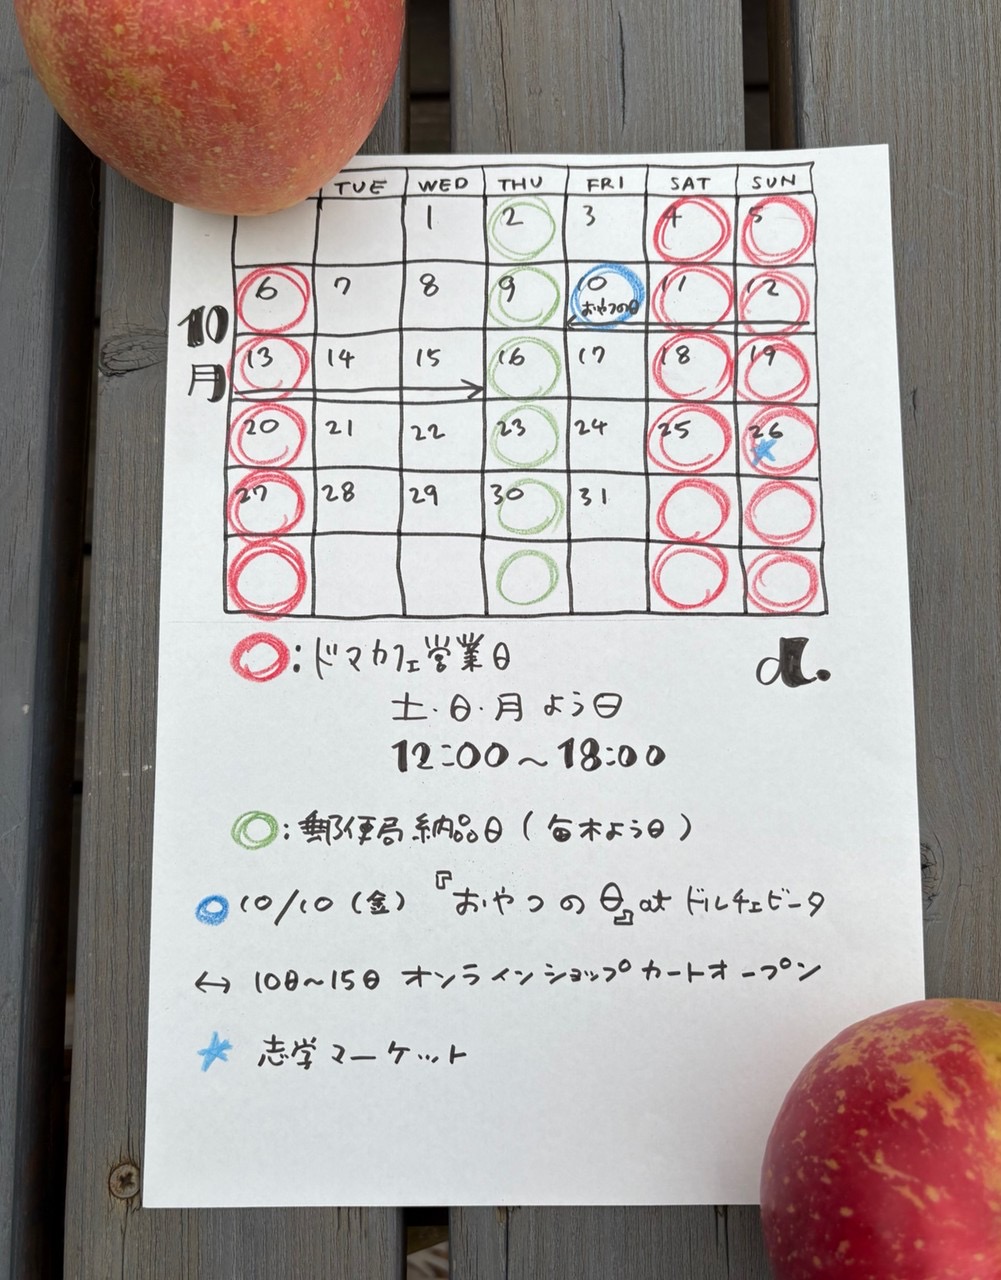 TUE WED THU FRI SAT SUN
1 2 3 4 5
6 7 8 9 10 11 12
おやつの日
10月
13 14 15 16 17 18 19
20 21 22 23 24 25 26
27 28 29 30 31
○:ドマカフェ営業日
d.
土・日・月よう日
12:00~18:00
○:郵便局納品日(毎木よう日)
○10/10(金)『おやつの日』at ドルチェビータ
↔ 10日~15日 オンラインショップカートオープン
★ 志学マーケット